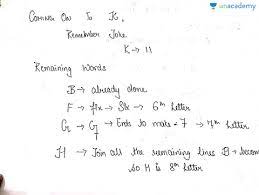 unacademy
Coming On To K,
Remember Joke
K → 11
Remaining Words
B → already done
F → fix → Six → 6th letter
G → G 7 → Ends to make = 7 → 7th letter
H → Join all the remaining lines B → become
so H is 8th letter